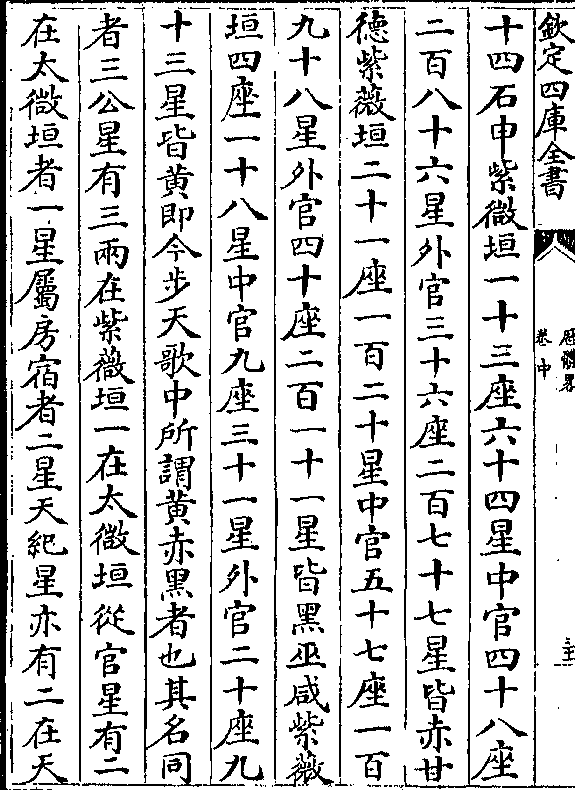 欽定四庫全書
曆體畧
卷中
十四石申紫微垣一十三座六十四星中官四十八座
二百八十六星外官三十六座二百七十七星皆赤甘
德紫薇垣二十一座一百二十星中官五十七座一百
九十八星外官四十座二百一十一星皆黑巫咸紫薇
垣四座一十八星中官九座三十一星外官二十座九
十三星皆黄即今步天歌中所謂黄赤黑者也其名同
者三公星有三兩在紫薇垣一在太微垣從官星有二
在太微垣者一星屬房宿者二星天紀星亦有二在天